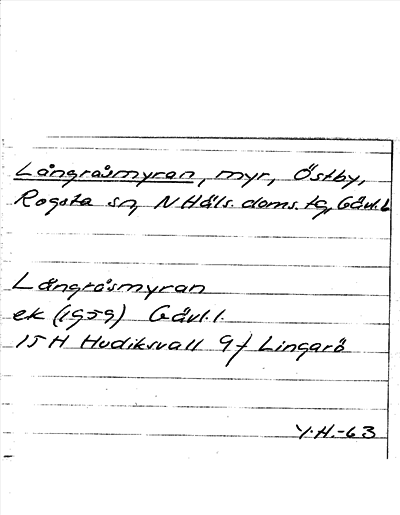 Långråsmyran, myr, Östby,
Rogsta sn, N Häls. doms. tg, Gävl. l.
Långråsmyran
ek (1959) Gävl. l.
15H Hudiksvall 9f Lingarö
Y.H.-63